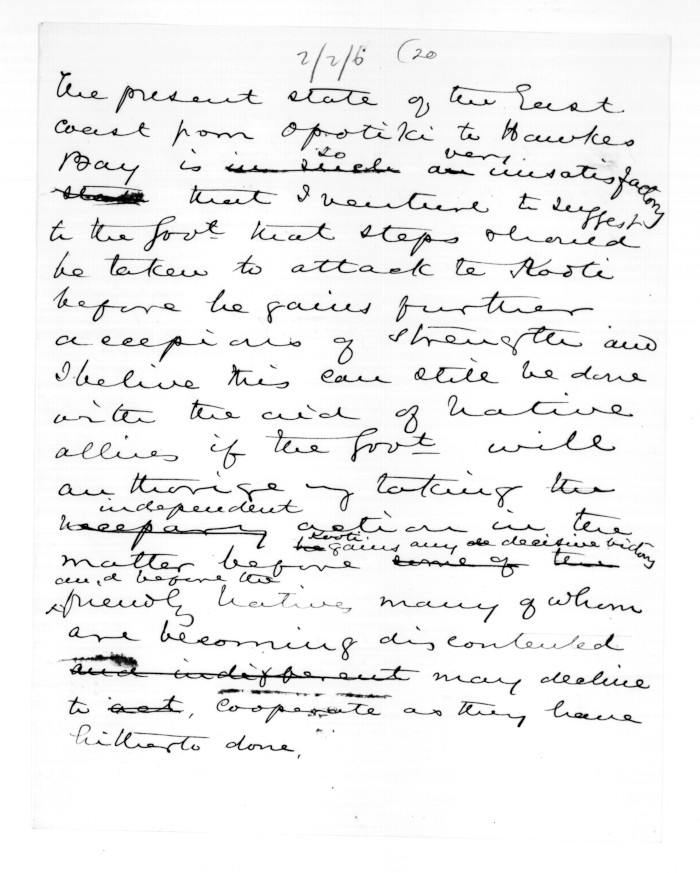 2/2/6 (20
The present state of the East
coast from Opotiki to Hawkes
so very
Bay is in such an unsatisfactory
state that I venture to suggest
to the Govt that steps should
be taken to attack te Kooti
before he gains further
accepions of strength and
I belive this can still be done
with the aid of Native
allies if the Govt will
authorize my taking the
independent
necessary action in the
Kooti
he gains any de decisive victory
matter before some of the
and before the
friendly Natives many of whom
are becoming discontented
and indifferent may decline
to act, cooperate as they have
hitherto done.